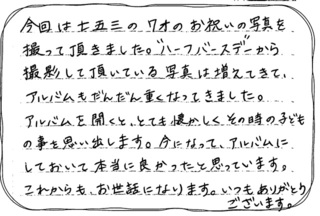 今回は七五三の7才のお祝いの写真を
撮って頂きました。ハーフバースデーから
撮影して頂いている写真は増えてきて、
アルバムもだんだん重くなってきました。
アルバムを開くと、とても懐かしく、その時の子ども
の事を思い出します。今になって、アルバムに
しておいて本当に良かったと思っています。
これからも、お世話になります。いつもありがとう
ございます。